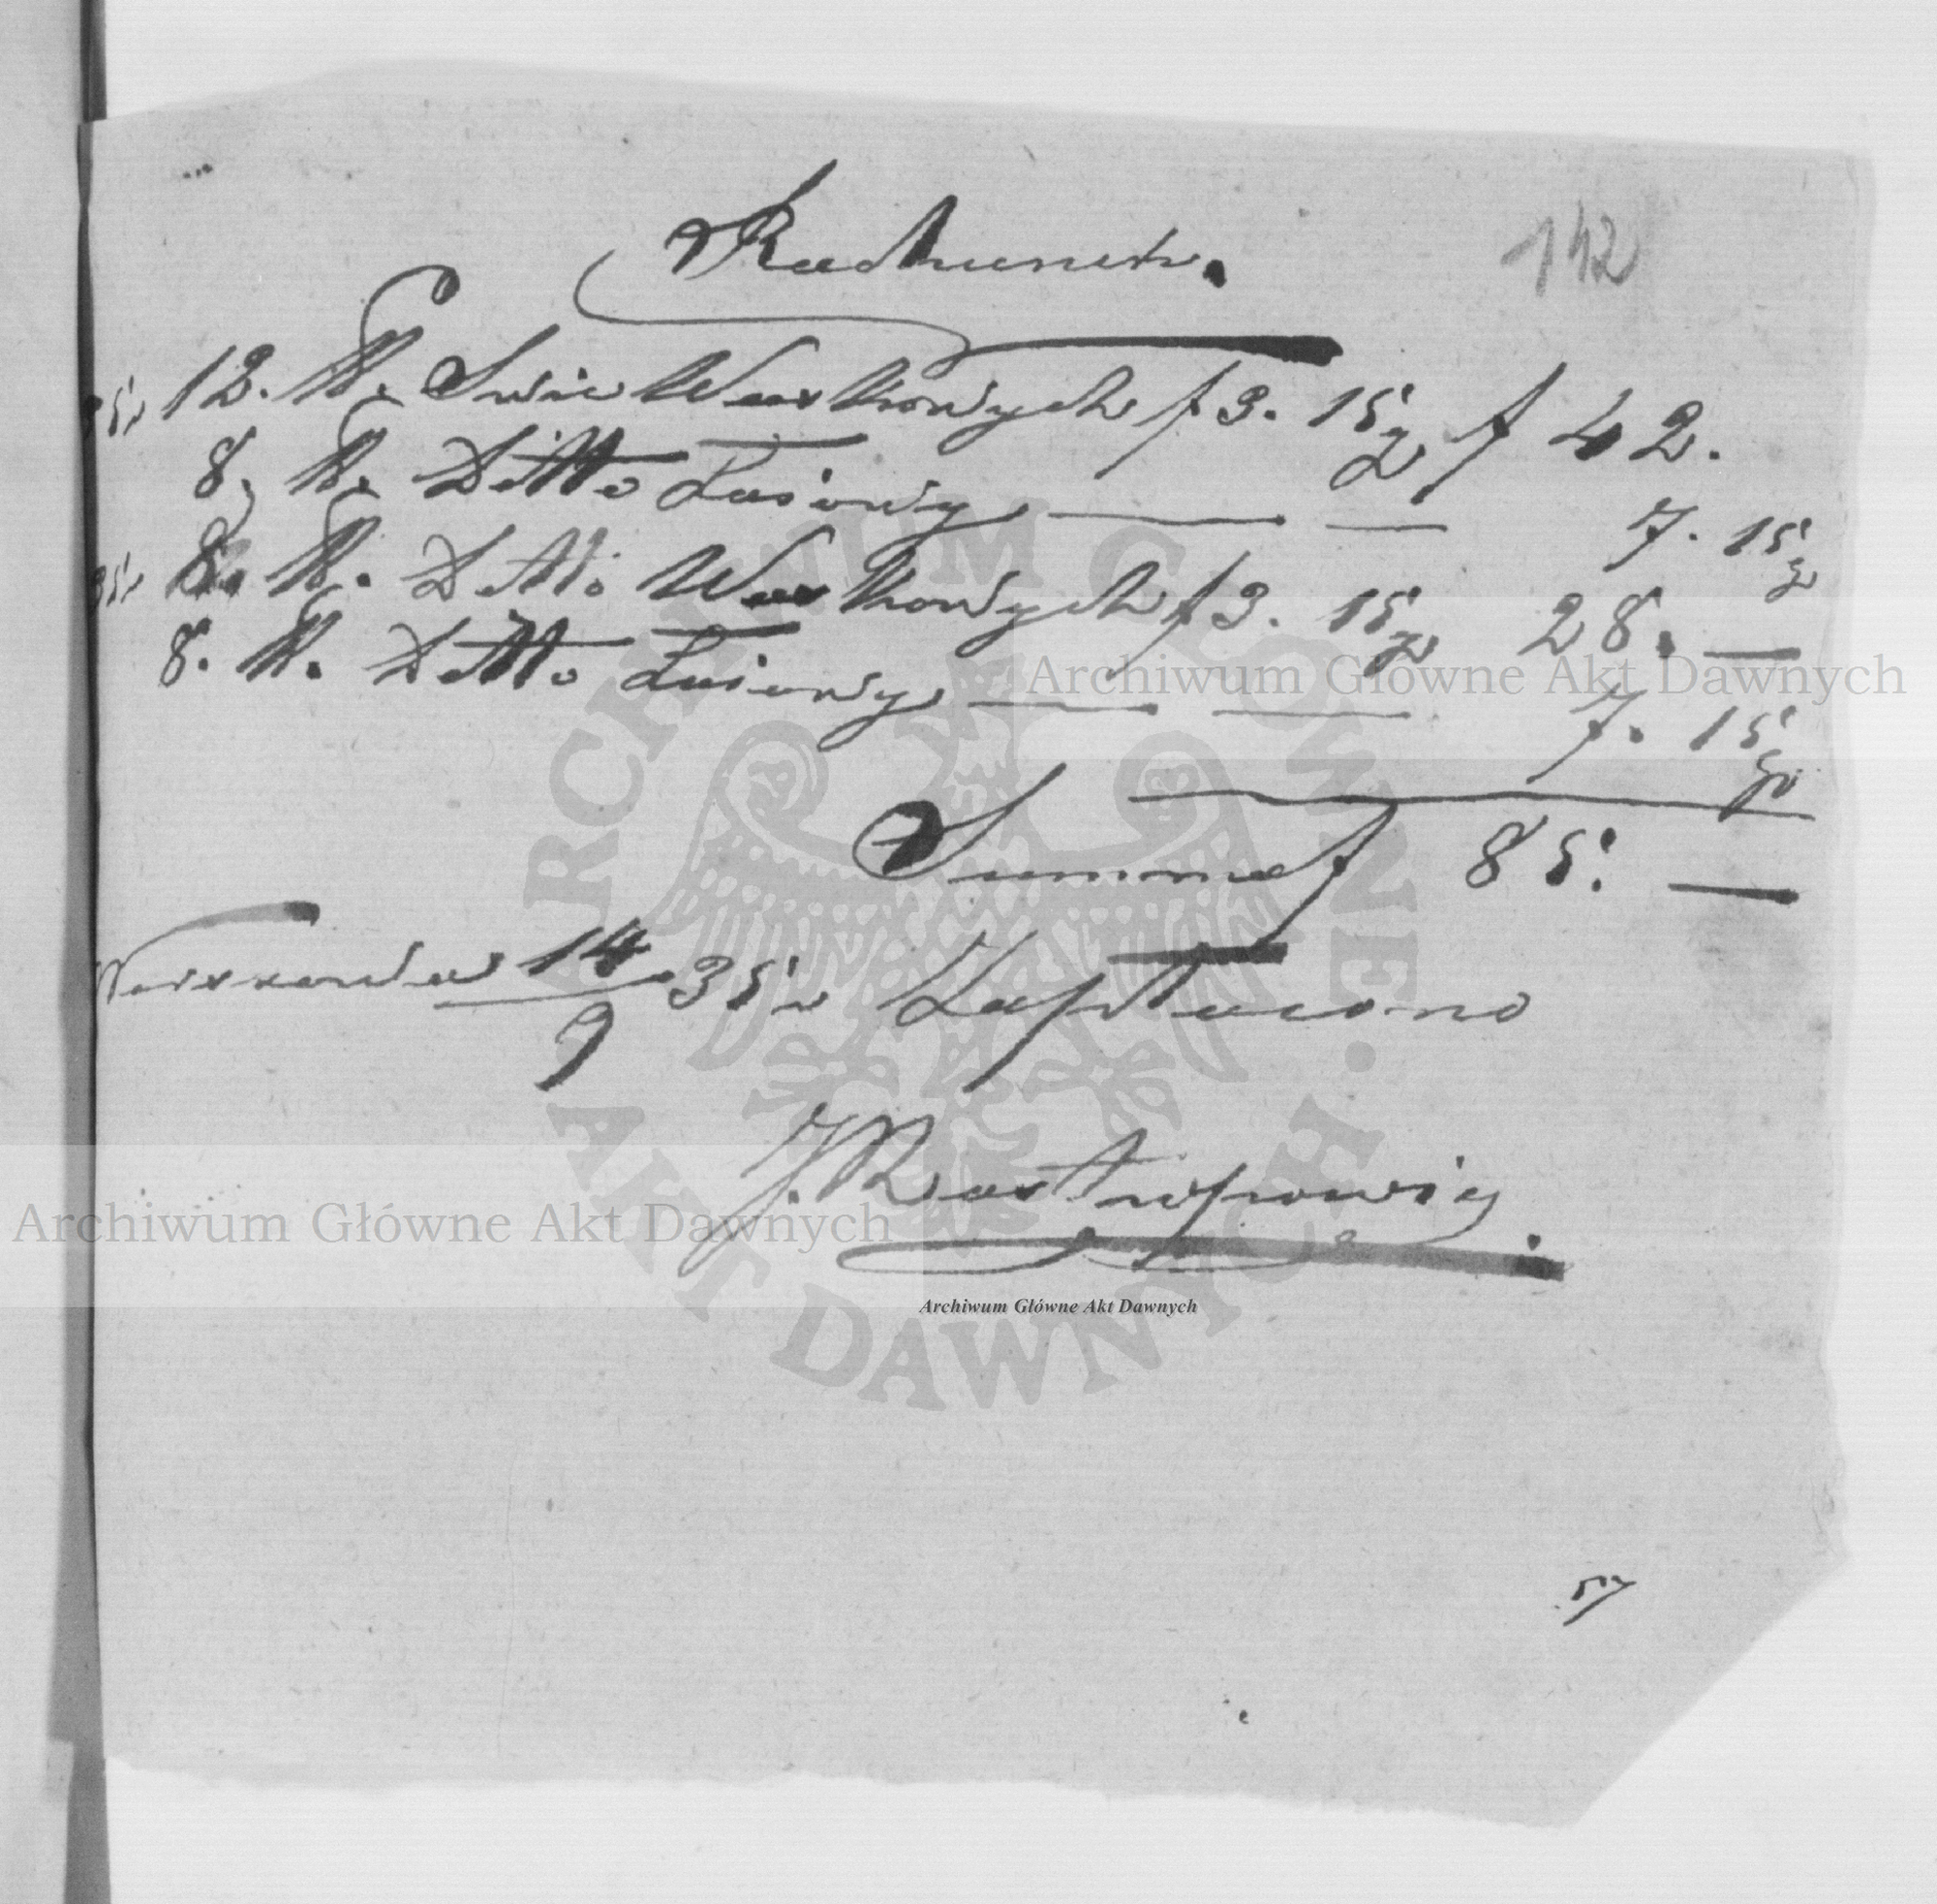 Rachunek.
142
12. ℔. Swic Woskowych f 3. 15 g f 42.
8. ℔. Ditto Łoiowy — — 7. 15 g
8. ℔. Ditto Woskowych f 3. 15 g 28. —
8. ℔. Ditto Łoiowy — — 7. 15 g
Summa f 85. —
14/9 35 Zapłacono
Archiwum Główne Akt Dawnych
Archiwum Główne Akt Dawnych
Archiwum Główne Akt Dawnych
ARCHIWUM GŁÓWNE AKT DAWNYCH